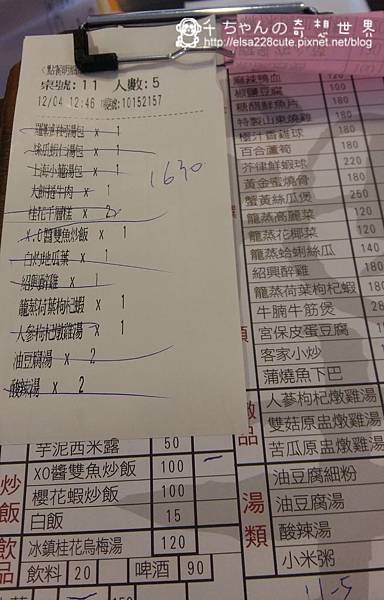 千ちゃんの奇想世界
http://elsa228cute.pixnet.net/blog
桌號:11 人數:5
12/04 12:46 10152157
絲瓜蝦仁湯包 x 1
上海小籠湯包 x 1
大餅捲牛肉 x 1
桂花千層糕 x 2
X.O醬雙魚炒飯 x 1
白灼地瓜葉 x 1
紹興醉雞 x 1
龍蒸荷葉枸杞蝦 x 1
人參枸杞燉雞湯 x 1
油豆腐湯 x 2
酸辣湯 x 2
1630
麻辣鴨血
椒鹽豆腐
糖醋鮮魚片 180
特製山東燒雞 180
橙汁香雞球 180
百合蘆筍 180
芥律鮮蝦球 220
黃金蜜燒骨 180
蟹黃絲瓜煲 250
龍蒸高麗菜 120
龍蒸花椰菜 120
龍蒸蛤蜊絲瓜 140
紹興醉雞 120
龍蒸荷葉枸杞蝦 180
牛腩牛筋煲
宮保皮蛋豆腐
客家小炒
蒲燒魚下巴
人蔘枸杞燉雞湯
雙菇原盅燉雞湯
苦瓜原盅燉雞湯
油豆腐細粉
油豆腐湯
酸辣湯
小米粥
類
燉品
湯類
芋泥西米露 50
炒飯
XO醬雙魚炒飯 100
櫻花蝦炒飯 100
白飯 15
飲品
冰鎮桂花烏梅湯 120
飲料 20 啤酒 90